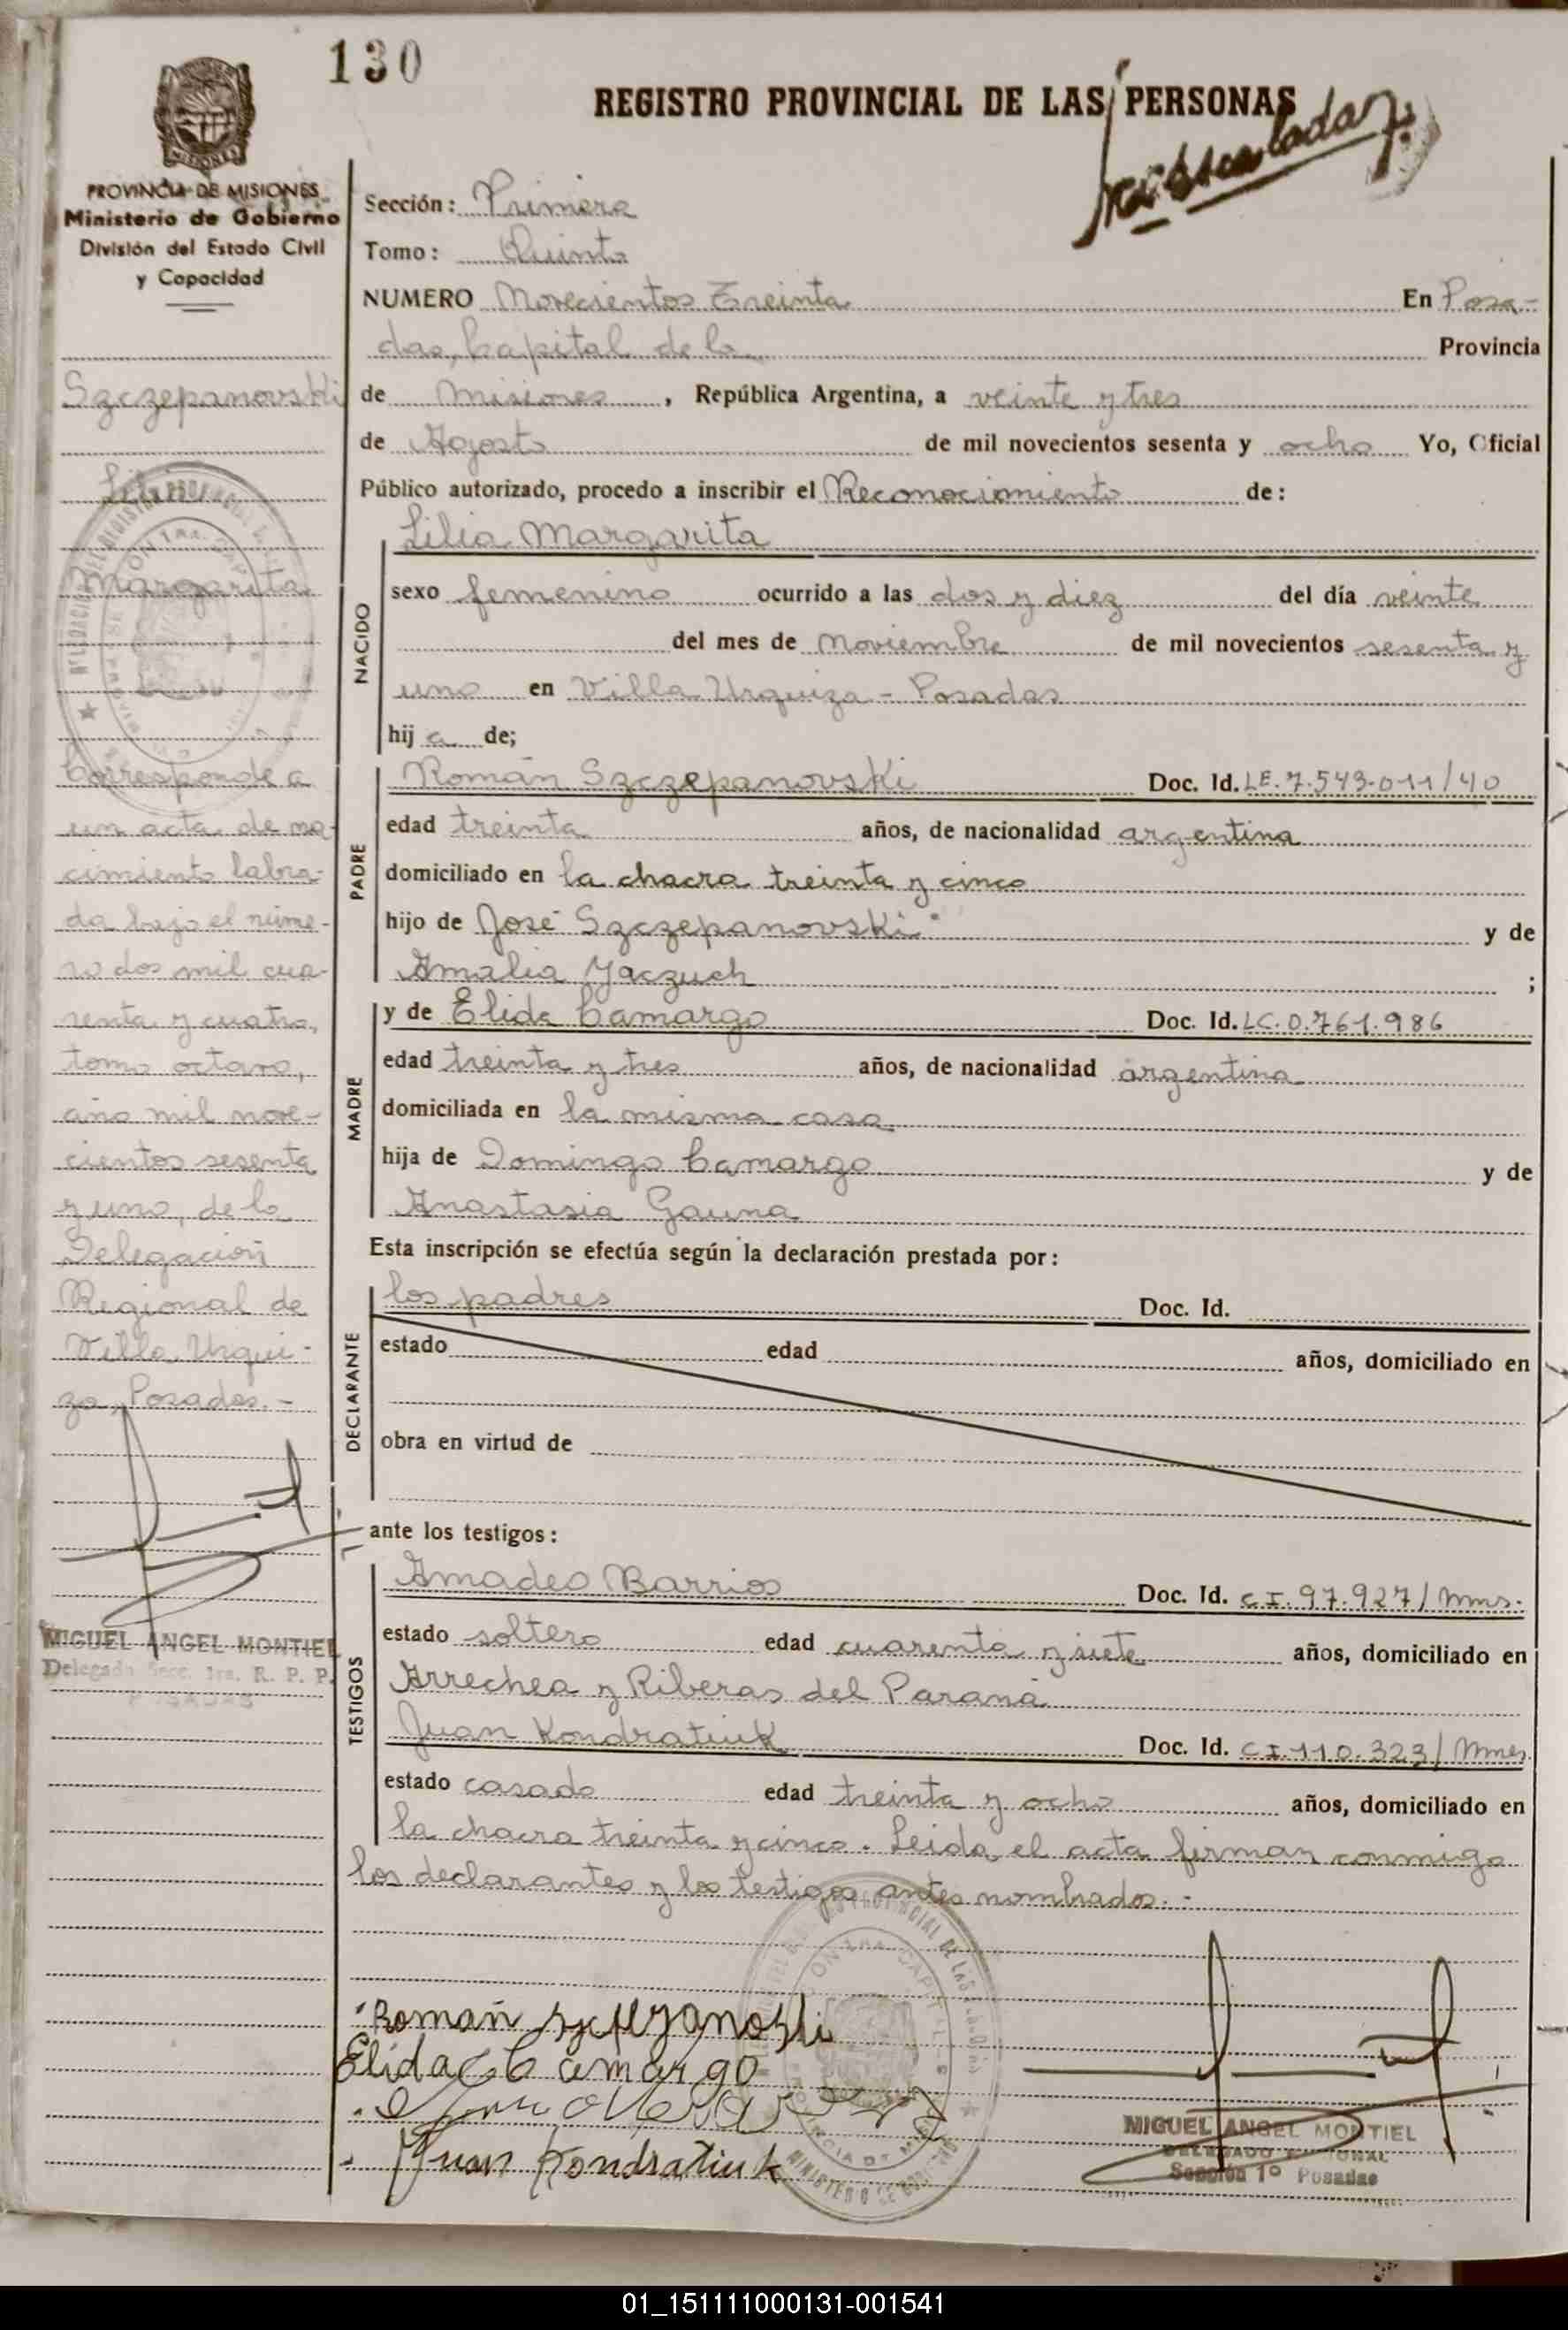 130
REGISTRO PROVINCIAL DE LAS PERSONAS
PROVINCIA DE MISIONES
Ministerio de Gobierno
División del Estado Civil
y Capacidad
Szczepanovski
Lilia
Margarita
Corresponde a
un acta de na-
cimiento labra-
da bajo el núme-
ro dos mil cua-
renta y cuatro,
tomo octavo,
año mil nove-
cientos sesenta
y uno, de la
Delegación
Regional de
Villa Urqui-
za, Posadas.-
MIGUEL ANGEL MONTIEL
Delegado Secc. 1ra. R. P. P.
POSADAS
Sección: Primera
Tomo: Quinto
NUMERO Novecientos Treinta En Posa-
das, Capital de la Provincia
de Misiones, República Argentina, a veinte y tres
de Agosto de mil novecientos sesenta y ocho Yo, Oficial
Público autorizado, procedo a inscribir el Reconocimiento de:
Lilia Margarita
NACIDO
sexo femenino ocurrido a las dos y diez del día veinte
del mes de Noviembre de mil novecientos sesenta y
uno en Villa Urquiza - Posadas
hija de;
PADRE
Román Szczepanovski Doc. Id. LE.7.543.011/40
edad treinta años, de nacionalidad argentina
domiciliado en la chacra treinta y cinco
hijo de José Szczepanovski y de
Amalia Yaczuch ;
MADRE
y de Elida Camargo Doc. Id. LC.0.761.986
edad treinta y tres años, de nacionalidad argentina
domiciliada en la misma casa
hija de Domingo Camargo y de
Anastasia Gauna
Esta inscripción se efectúa según la declaración prestada por:
DECLARANTE
los padres Doc. Id.
estado edad años, domiciliado en
obra en virtud de
ante los testigos:
TESTIGOS
Amadeo Barrios Doc. Id. CI.97.927/Mnes.
estado soltero edad cuarenta y siete años, domiciliado en
Arrechea y Riberas del Paraná
Juan Kondratiuk Doc. Id. CI.110.323/Mnes
estado casado edad treinta y ocho años, domiciliado en
la chacra treinta y cinco. Leida el acta firman conmigo
los declarantes y los testigos antes nombrados.-
Román
Elida C Camargo
Juan Kondratiuk
MIGUEL ANGEL MONTIEL
DELEGADO REGIONAL
Sección 1º Posadas
01_151111000131-001541